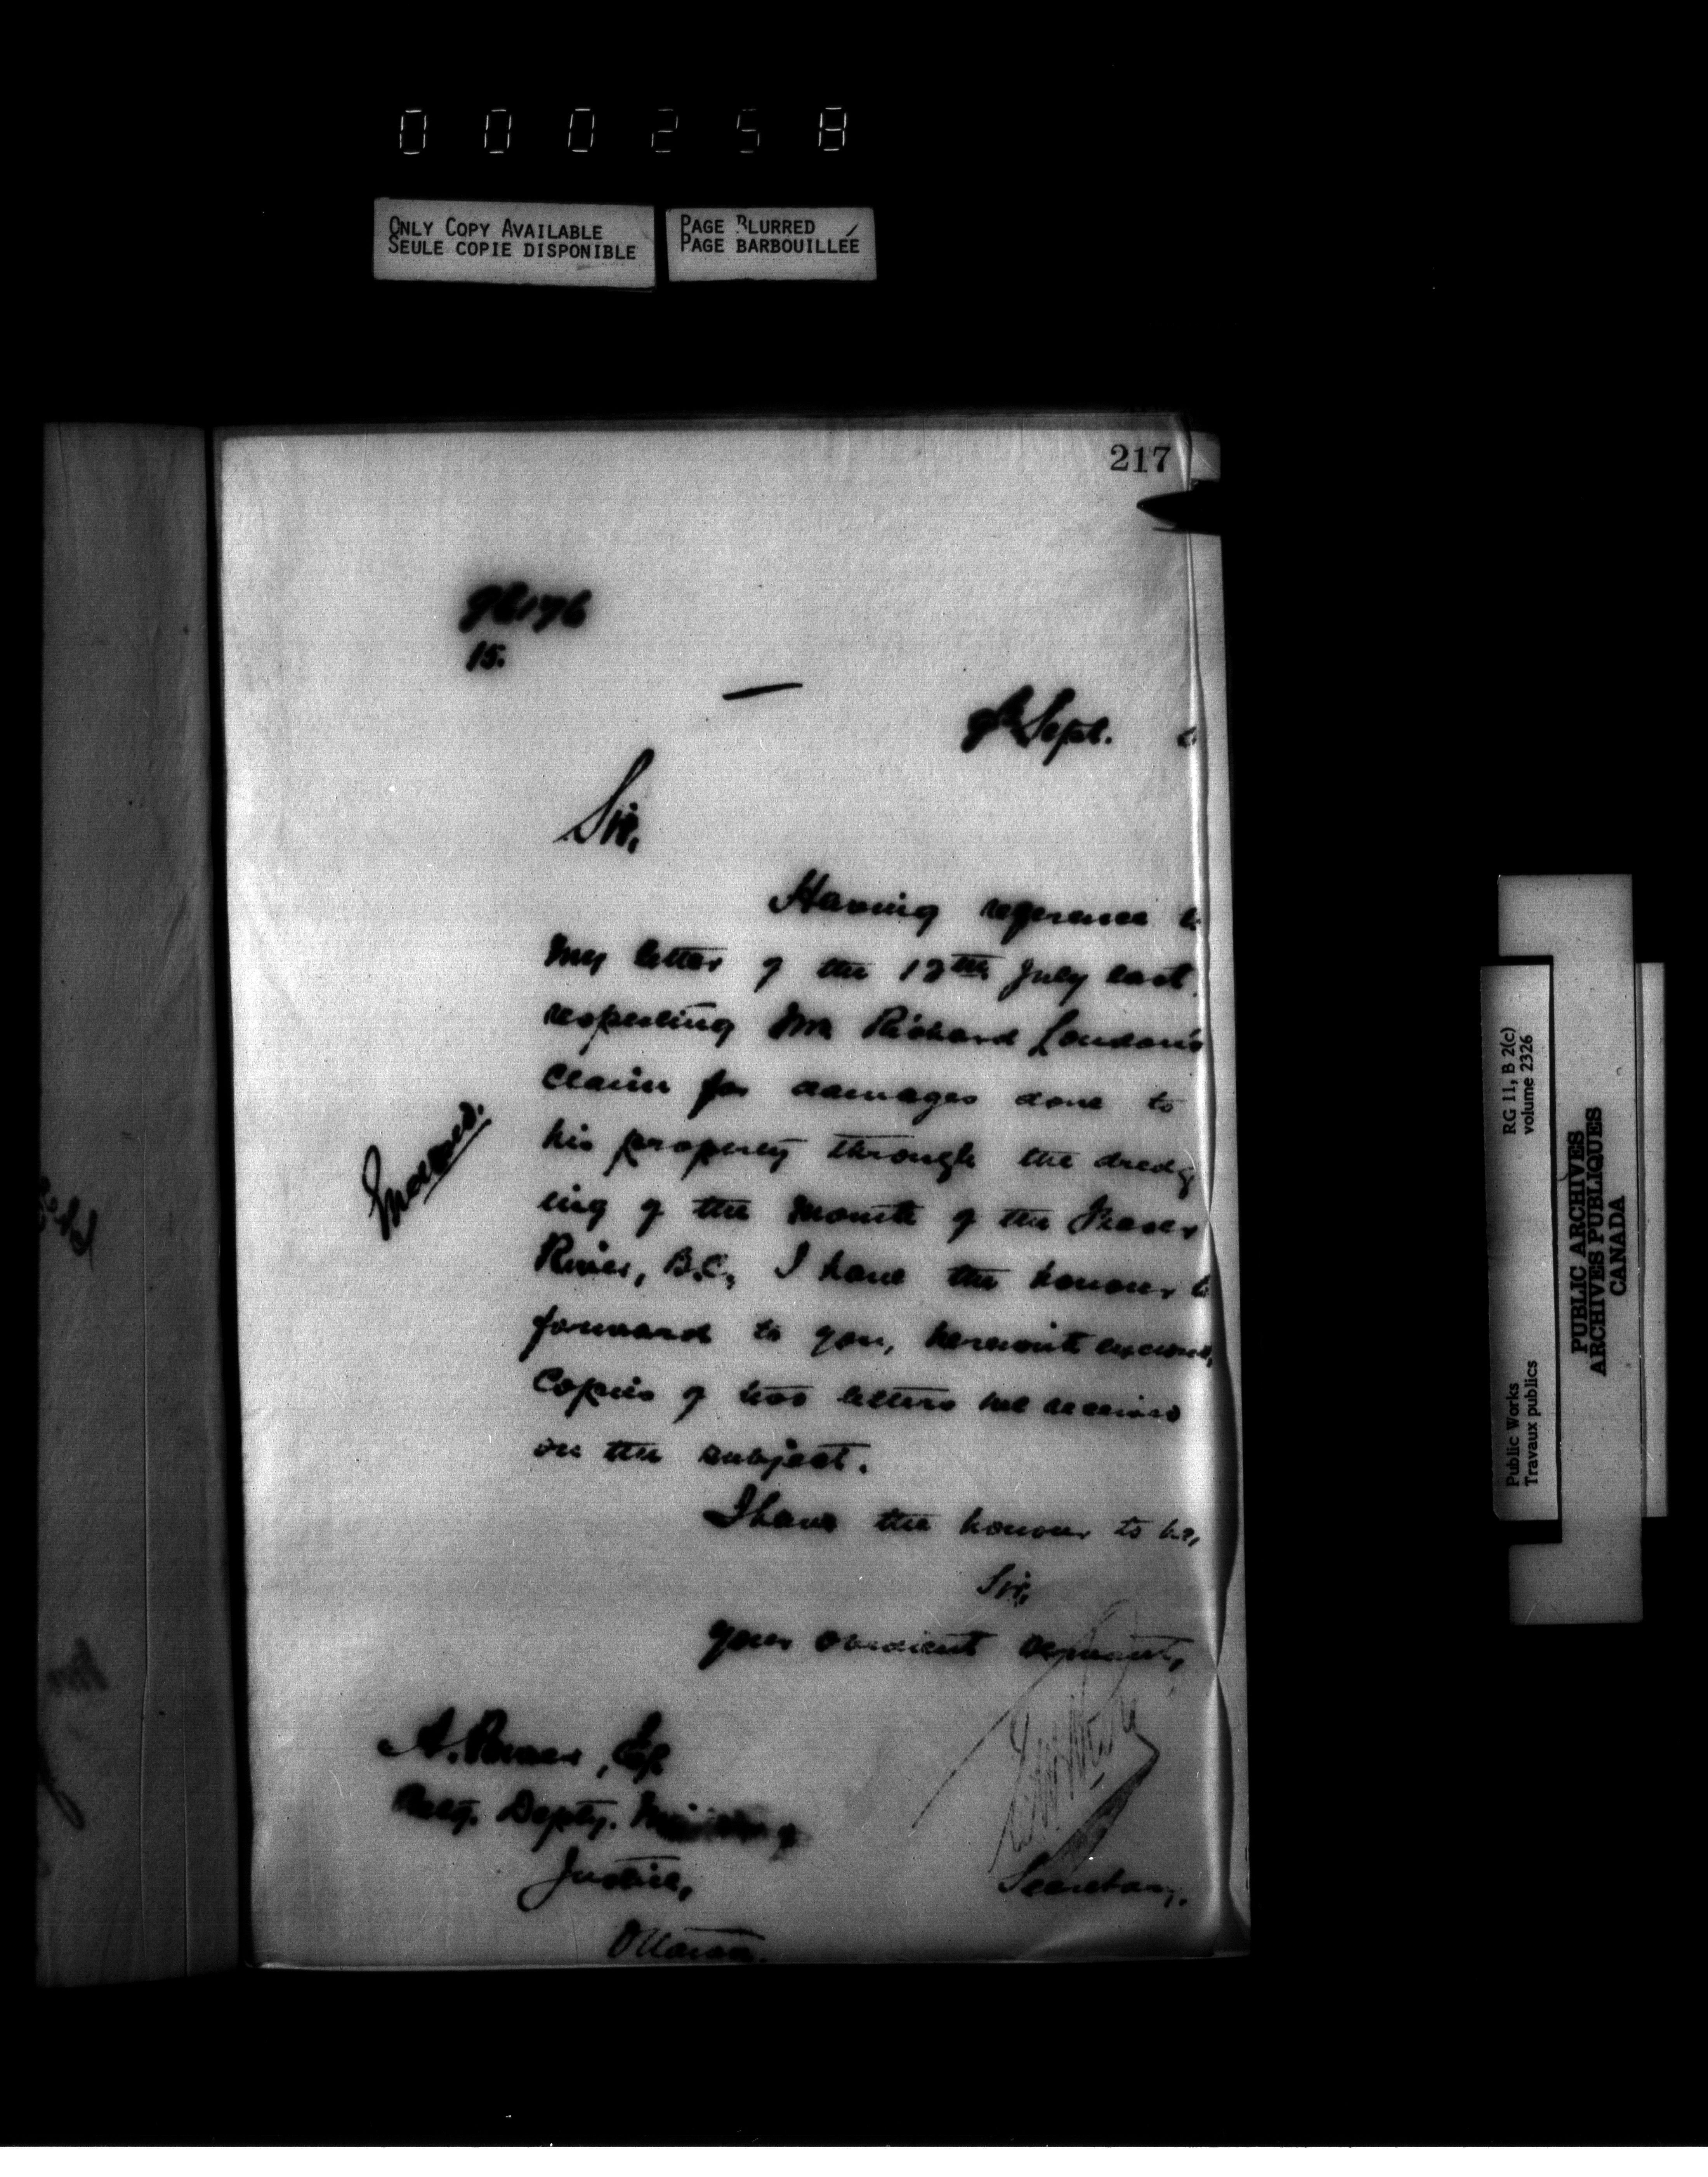 000258
ONLY COPY AVAILABLE
SEULE COPIE DISPONIBLE
PAGE BLURRED
PAGE BARBOUILLÉE
217
15.
9th Sept.
Sir,
Having reference to
my letter of the 12th July last,
respecting Mr. Richard London's
claim for damages done to
his property through the dredg
ing of the mouth of the Fraser
River, B.C., I have the honour to
forward to you, herewith enclosed,
copies of two letters received
on the subject.
I have the honour to be,
Sir,
Your obedient servant,
A. Power, Esq.
Actg. Depty. Minister of
Justice,
Ottawa.
Secretary.
Public Works
Travaux publics
RG 11, B 2(c)
volume 2326
PUBLIC ARCHIVES
ARCHIVES PUBLIQUES
CANADA